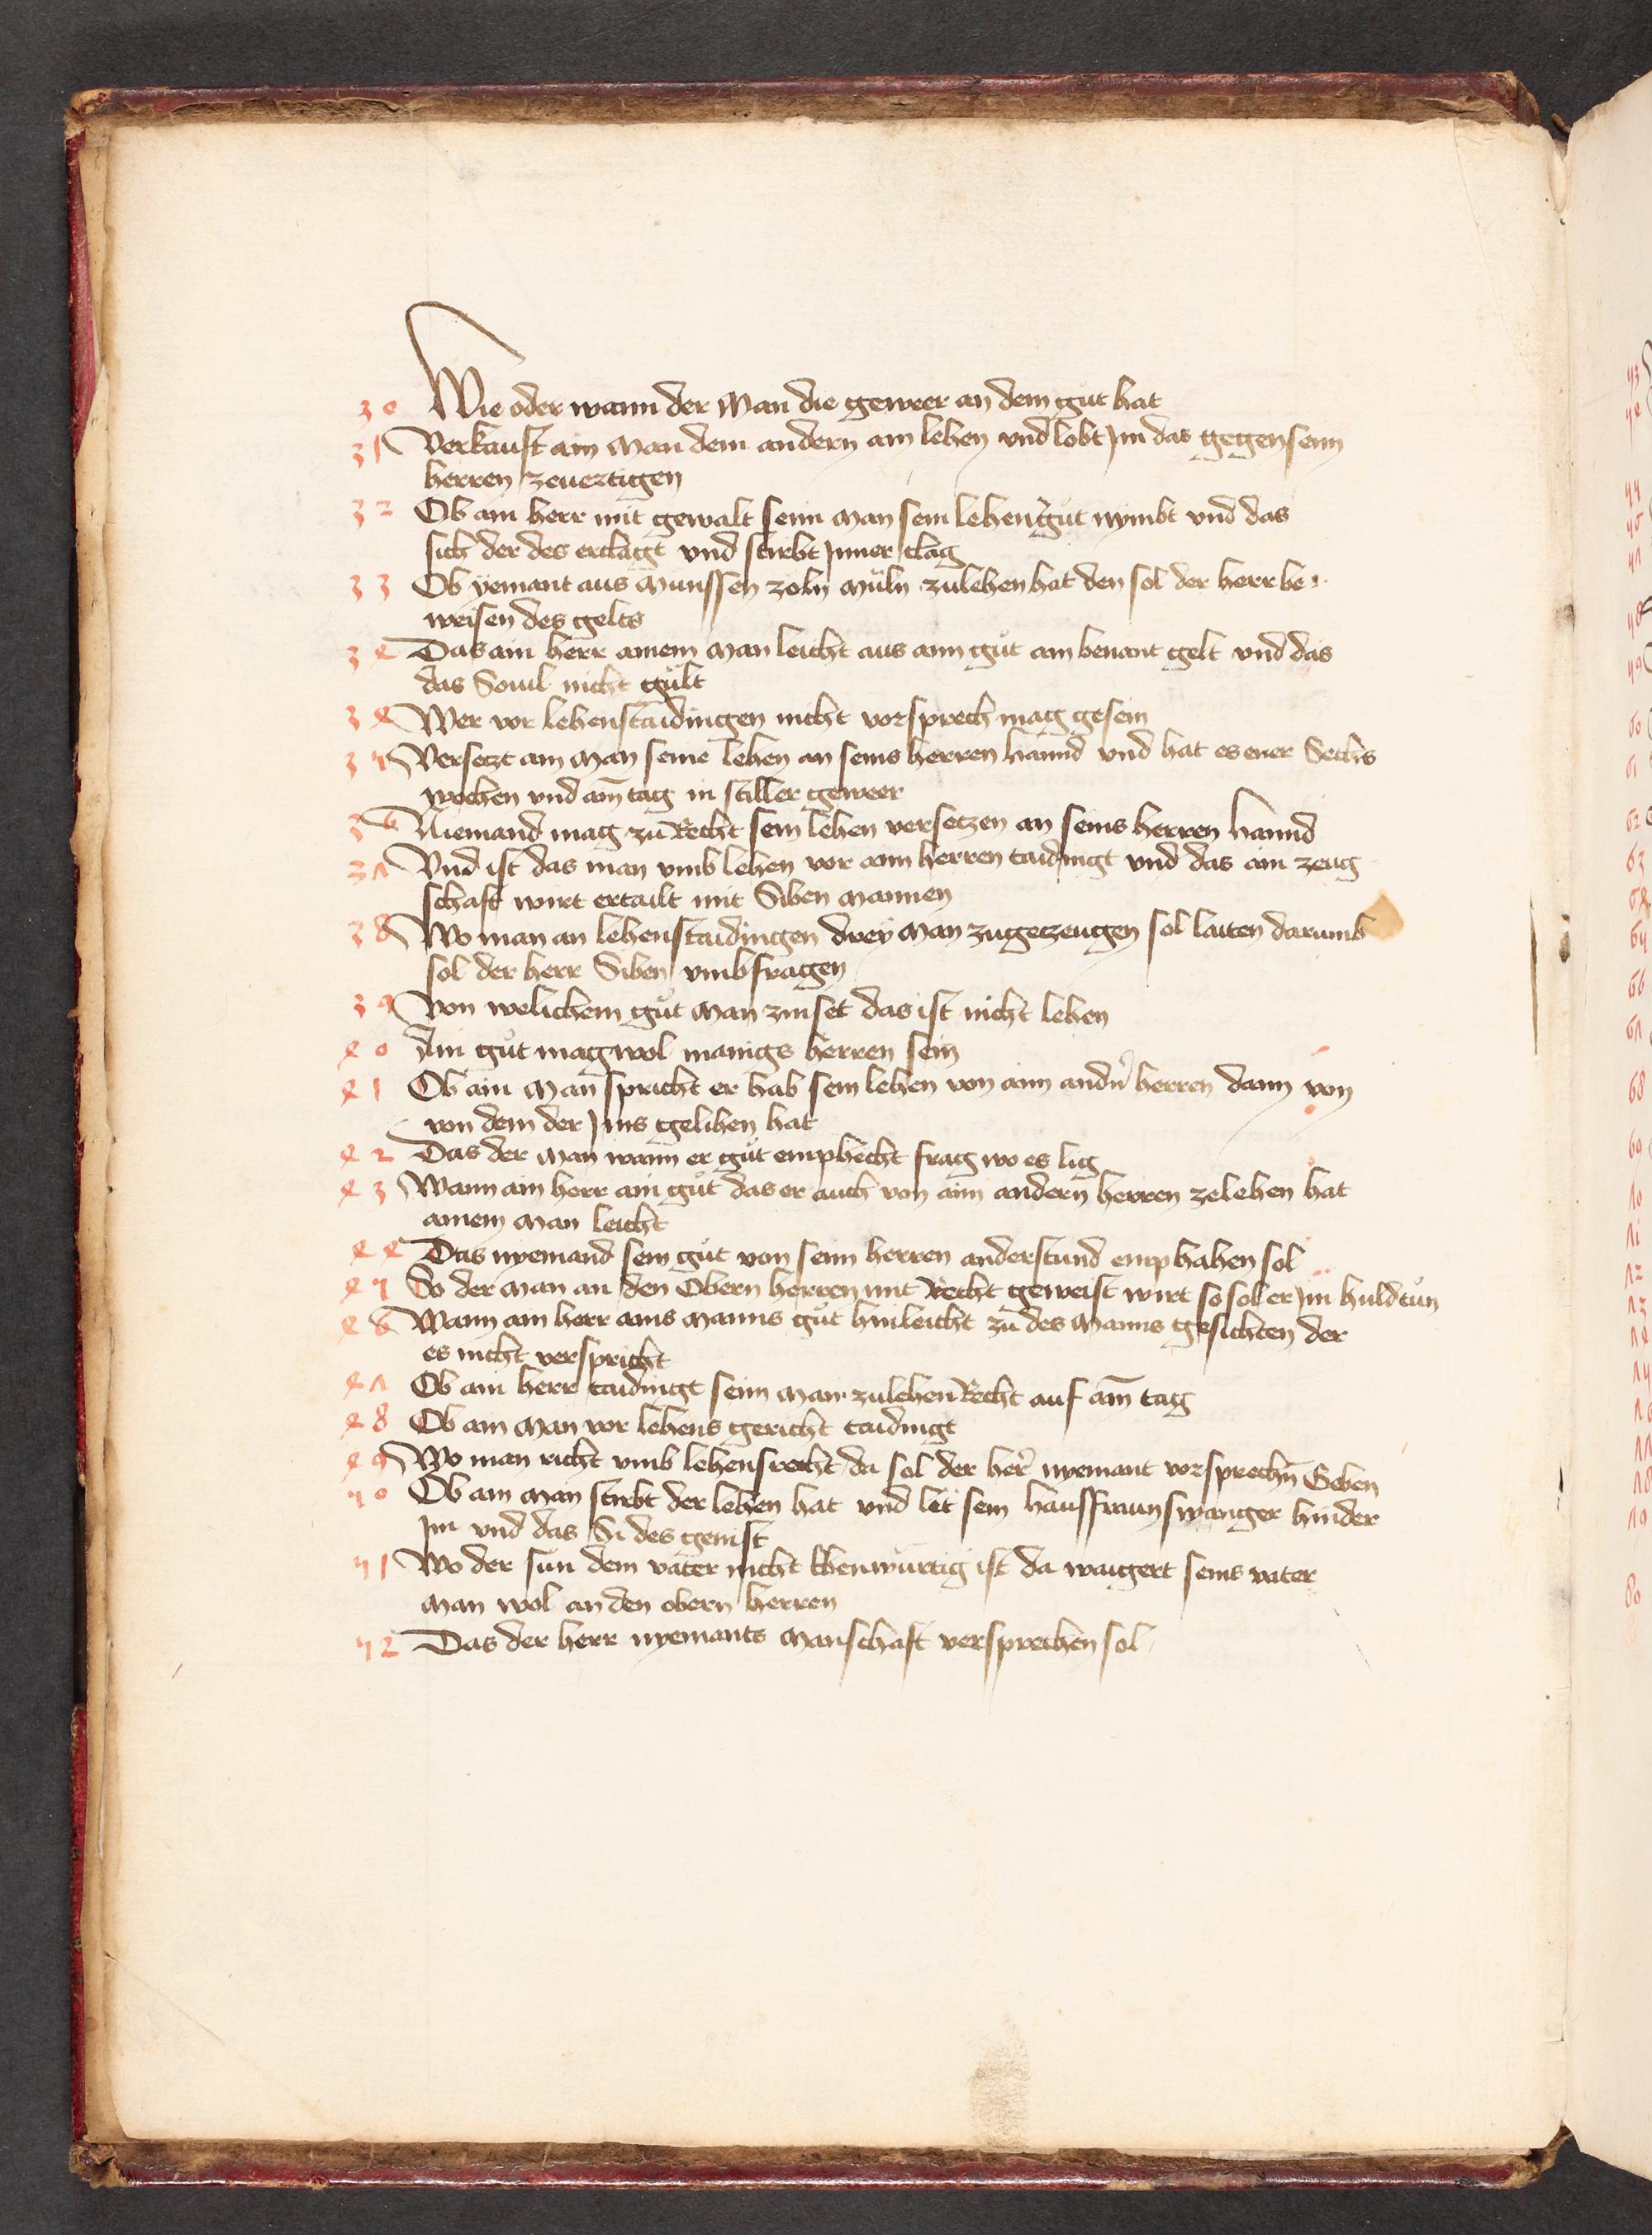 30 Wie oder wann der Man die geweer an dem gut hat
31 Verkauft ain Man dem andern ain lehen vnd lobt Im das gegen seim
herren zeuertigen
32 Ob ain herr mit gewalt seim man sein lehengůt nymbt vnd das
sich der des erclagt vnd stirbt Inner clag
33 Ob yemant aus Münssen zoln müln zulehen hat den sol der herr be
weisen des gelts
34 Das ain herr ainem man leicht aus aim gůt ain benant gelt vnd das
das Souil nicht gült
34 Wer vor lehenstaidingen nicht vorsprech mag gesein
35 Versetzt ain Man seine lehen an seins herren hannd vnd hat es ener Sechs
wochen vnd ain tag in stiller geweer
36 Niemand mag zu Recht sein lehen versetzen an seins herren hannd
37 Vnd ist das man vmb lehen vor aim herren taidingt vnd das ain zeug
schaft wirt ertailt mit Siben mannen
38 Wo man an lehenstaidingen drey Man zugetzeugen sol laiten darumb
sol der herr Siben vmbfragen
39 Von welichem gůt Man zinset das ist nicht lehen
40 Ain gůt mag wol manigs herren sein
41 Ob ain Man spricht er hab sein lehen von aim andn̄ herren dann von
von dem der Ims gelihen hat
42 Das der man wann er gůt emphecht frag wo es lig
43 Wann ain herr ain gůt das er auch von aim andern herren zelehen hat
ainem man leicht
44 Das nyemand sein gůt von seim herren anderstund emphahen sol
45 So der Man an den Obern herren mit Recht geweist wirt so sol er Im huld tůn
46 Wann ain herr ains Manns gůt hinleicht zů des Manns gesichten der
es nicht verspricht
47 Ob ain herr taidingt seim man zulehenRecht auf ain tag
48 Ob ain man vor lehens gericht taidingt
49 Wo man richt vmb lehensrecht da sol der her nyemant vorsprechn̄ Geben
50 Ob ain man stirbt der lehen hat vnd let sein haussfraun swanger hinder
Im vnd das Si des genist
51 Wo der sun dem vater nicht Ebenwürtig ist da waigert seins vater
man wol an den obern herren
52 Das der herr nyemants Manschaft versprechen sol